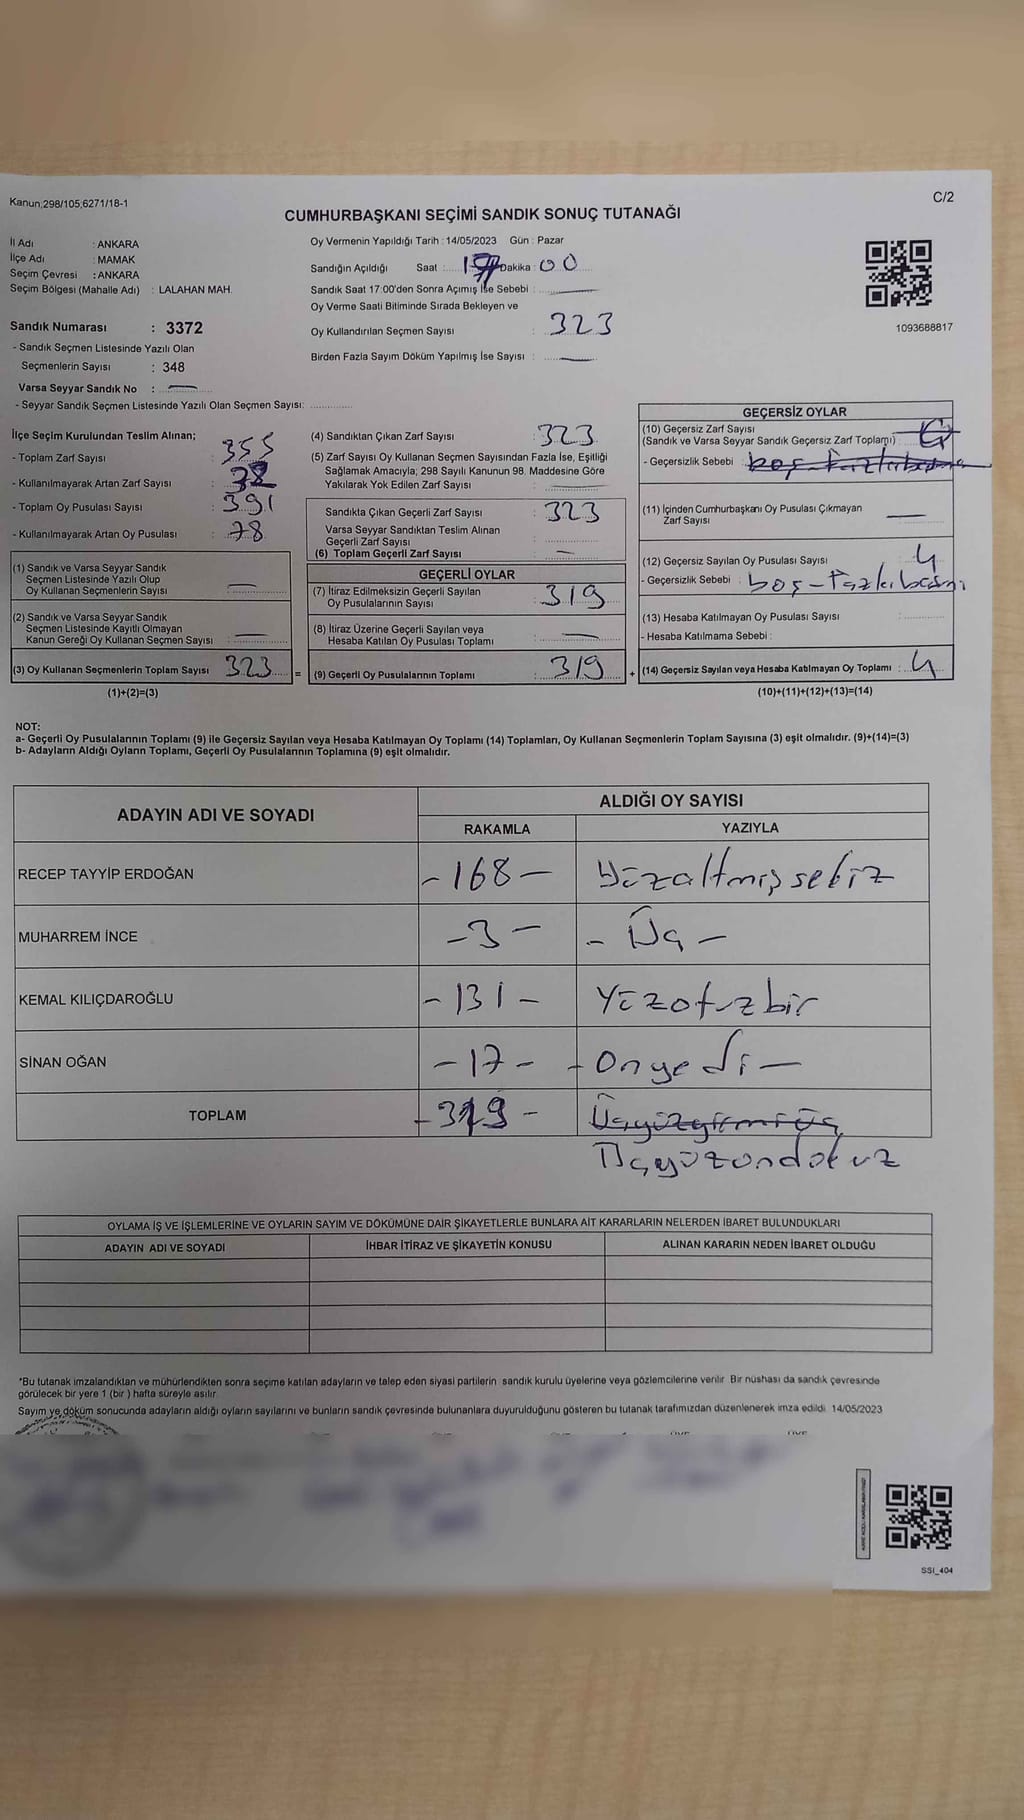 Kanun;298/105;6271/18-1
C/2
CUMHURBAŞKANI SEÇİMİ SANDIK SONUÇ TUTANAĞI
İl Adı : ANKARA
İlçe Adı : MAMAK
Seçim Çevresi : ANKARA
Seçim Bölgesi (Mahalle Adı) : LALAHAN MAH.
Sandık Numarası : 3372
- Sandık Seçmen Listesinde Yazılı Olan
Seçmenlerin Sayısı : 348
Varsa Seyyar Sandık No : —
- Seyyar Sandık Seçmen Listesinde Yazılı Olan Seçmen Sayısı:
Oy Vermenin Yapıldığı Tarih : 14/05/2023 Gün : Pazar
Sandığın Açıldığı Saat : Dakika : 00
Sandık Saat 17:00'den Sonra Açımış İse Sebebi : —
Oy Verme Saati Bitiminde Sırada Bekleyen ve
Oy Kullandırılan Seçmen Sayısı : 323
Birden Fazla Sayım Döküm Yapılmış İse Sayısı : —
1093688817
İlçe Seçim Kurulundan Teslim Alınan;
- Toplam Zarf Sayısı : 355
- Kullanılmayarak Artan Zarf Sayısı :
- Toplam Oy Pusulası Sayısı : 391
- Kullanılmayarak Artan Oy Pusulası : 78
(1) Sandık ve Varsa Seyyar Sandık
Seçmen Listesinde Yazılı Olup
Oy Kullanan Seçmenlerin Sayısı : —
(2) Sandık ve Varsa Seyyar Sandık
Seçmen Listesinde Kayıtlı Olmayan
Kanun Gereği Oy Kullanan Seçmen Sayısı : —
(3) Oy Kullanan Seçmenlerin Toplam Sayısı : 323 =
(1)+(2)=(3)
(4) Sandıktan Çıkan Zarf Sayısı : 323
(5) Zarf Sayısı Oy Kullanan Seçmen Sayısından Fazla İse, Eşitliği
Sağlamak Amacıyla; 298 Sayılı Kanunun 98. Maddesine Göre
Yakılarak Yok Edilen Zarf Sayısı : —
Sandıkta Çıkan Geçerli Zarf Sayısı : 323
Varsa Seyyar Sandıktan Teslim Alınan
Geçerli Zarf Sayısı :
(6) Toplam Geçerli Zarf Sayısı : —
GEÇERLİ OYLAR
(7) İtiraz Edilmeksizin Geçerli Sayılan
Oy Pusulalarının Sayısı : 319
(8) İtiraz Üzerine Geçerli Sayılan veya
Hesaba Katılan Oy Pusulası Toplamı : —
(9) Geçerli Oy Pusulalarının Toplamı : 319 +
GEÇERSİZ OYLAR
(10) Geçersiz Zarf Sayısı
(Sandık ve Varsa Seyyar Sandık Geçersiz Zarf Toplamı) :
- Geçersizlik Sebebi : boş - Fazla basma
(11) İçinden Cumhurbaşkanı Oy Pusulası Çıkmayan
Zarf Sayısı : —
(12) Geçersiz Sayılan Oy Pusulası Sayısı : 4
- Geçersizlik Sebebi : boş - Fazla basım
(13) Hesaba Katılmayan Oy Pusulası Sayısı :
- Hesaba Katılmama Sebebi :
(14) Geçersiz Sayılan veya Hesaba Katılmayan Oy Toplamı : 4
(10)+(11)+(12)+(13)=(14)
NOT:
a- Geçerli Oy Pusulalarının Toplamı (9) ile Geçersiz Sayılan veya Hesaba Katılmayan Oy Toplamı (14) Toplamları, Oy Kullanan Seçmenlerin Toplam Sayısına (3) eşit olmalıdır. (9)+(14)=(3)
b- Adayların Aldığı Oyların Toplamı, Geçerli Oy Pusulalarının Toplamına (9) eşit olmalıdır.
ADAYIN ADI VE SOYADI ALDIĞI OY SAYISI
RAKAMLA YAZIYLA
RECEP TAYYİP ERDOĞAN - 168 - Yüzaltmış sekiz
MUHARREM İNCE - 3 - - Üç -
KEMAL KILIÇDAROĞLU - 131 - Yüzotuzbir
SİNAN OĞAN - 17 - - Onyedi -
TOPLAM - 319 - Üçyüzyirmiüç
Üçyüzondokuz
OYLAMA İŞ VE İŞLEMLERİNE VE OYLARIN SAYIM VE DÖKÜMÜNE DAİR ŞİKAYETLERLE BUNLARA AİT KARARLARIN NELERDEN İBARET BULUNDUKLARI
ADAYIN ADI VE SOYADI İHBAR İTİRAZ VE ŞİKAYETİN KONUSU ALINAN KARARIN NEDEN İBARET OLDUĞU
*Bu tutanak imzalandıktan ve mühürlendikten sonra seçime katılan adayların ve talep eden siyasi partilerin sandık kurulu üyelerine veya gözlemcilerine verilir. Bir nüshası da sandık çevresinde
görülecek bir yere 1 (bir ) hafta süreyle asılır.
Sayım ve döküm sonucunda adayların aldığı oyların sayılarını ve bunların sandık çevresinde bulunanlara duyurulduğunu gösteren bu tutanak tarafımızdan düzenlenerek imza edildi. 14/05/2023
SSI_404